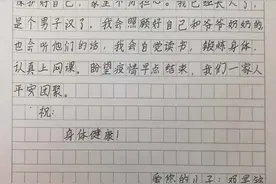 是个男子汉了，我会照顾好自己和爷爷奶奶的
也会听他们的话，我会自觉读书，锻炼身体，
认真上网课。盼望疫情早点结束，我们一家人
平安团聚。
祝：
身体健康！
爱你的儿子：邓